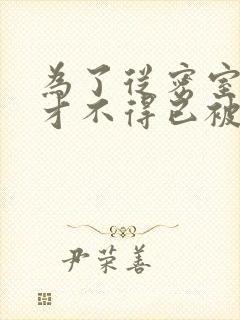 為了從密室
才不得已被
尹荣善